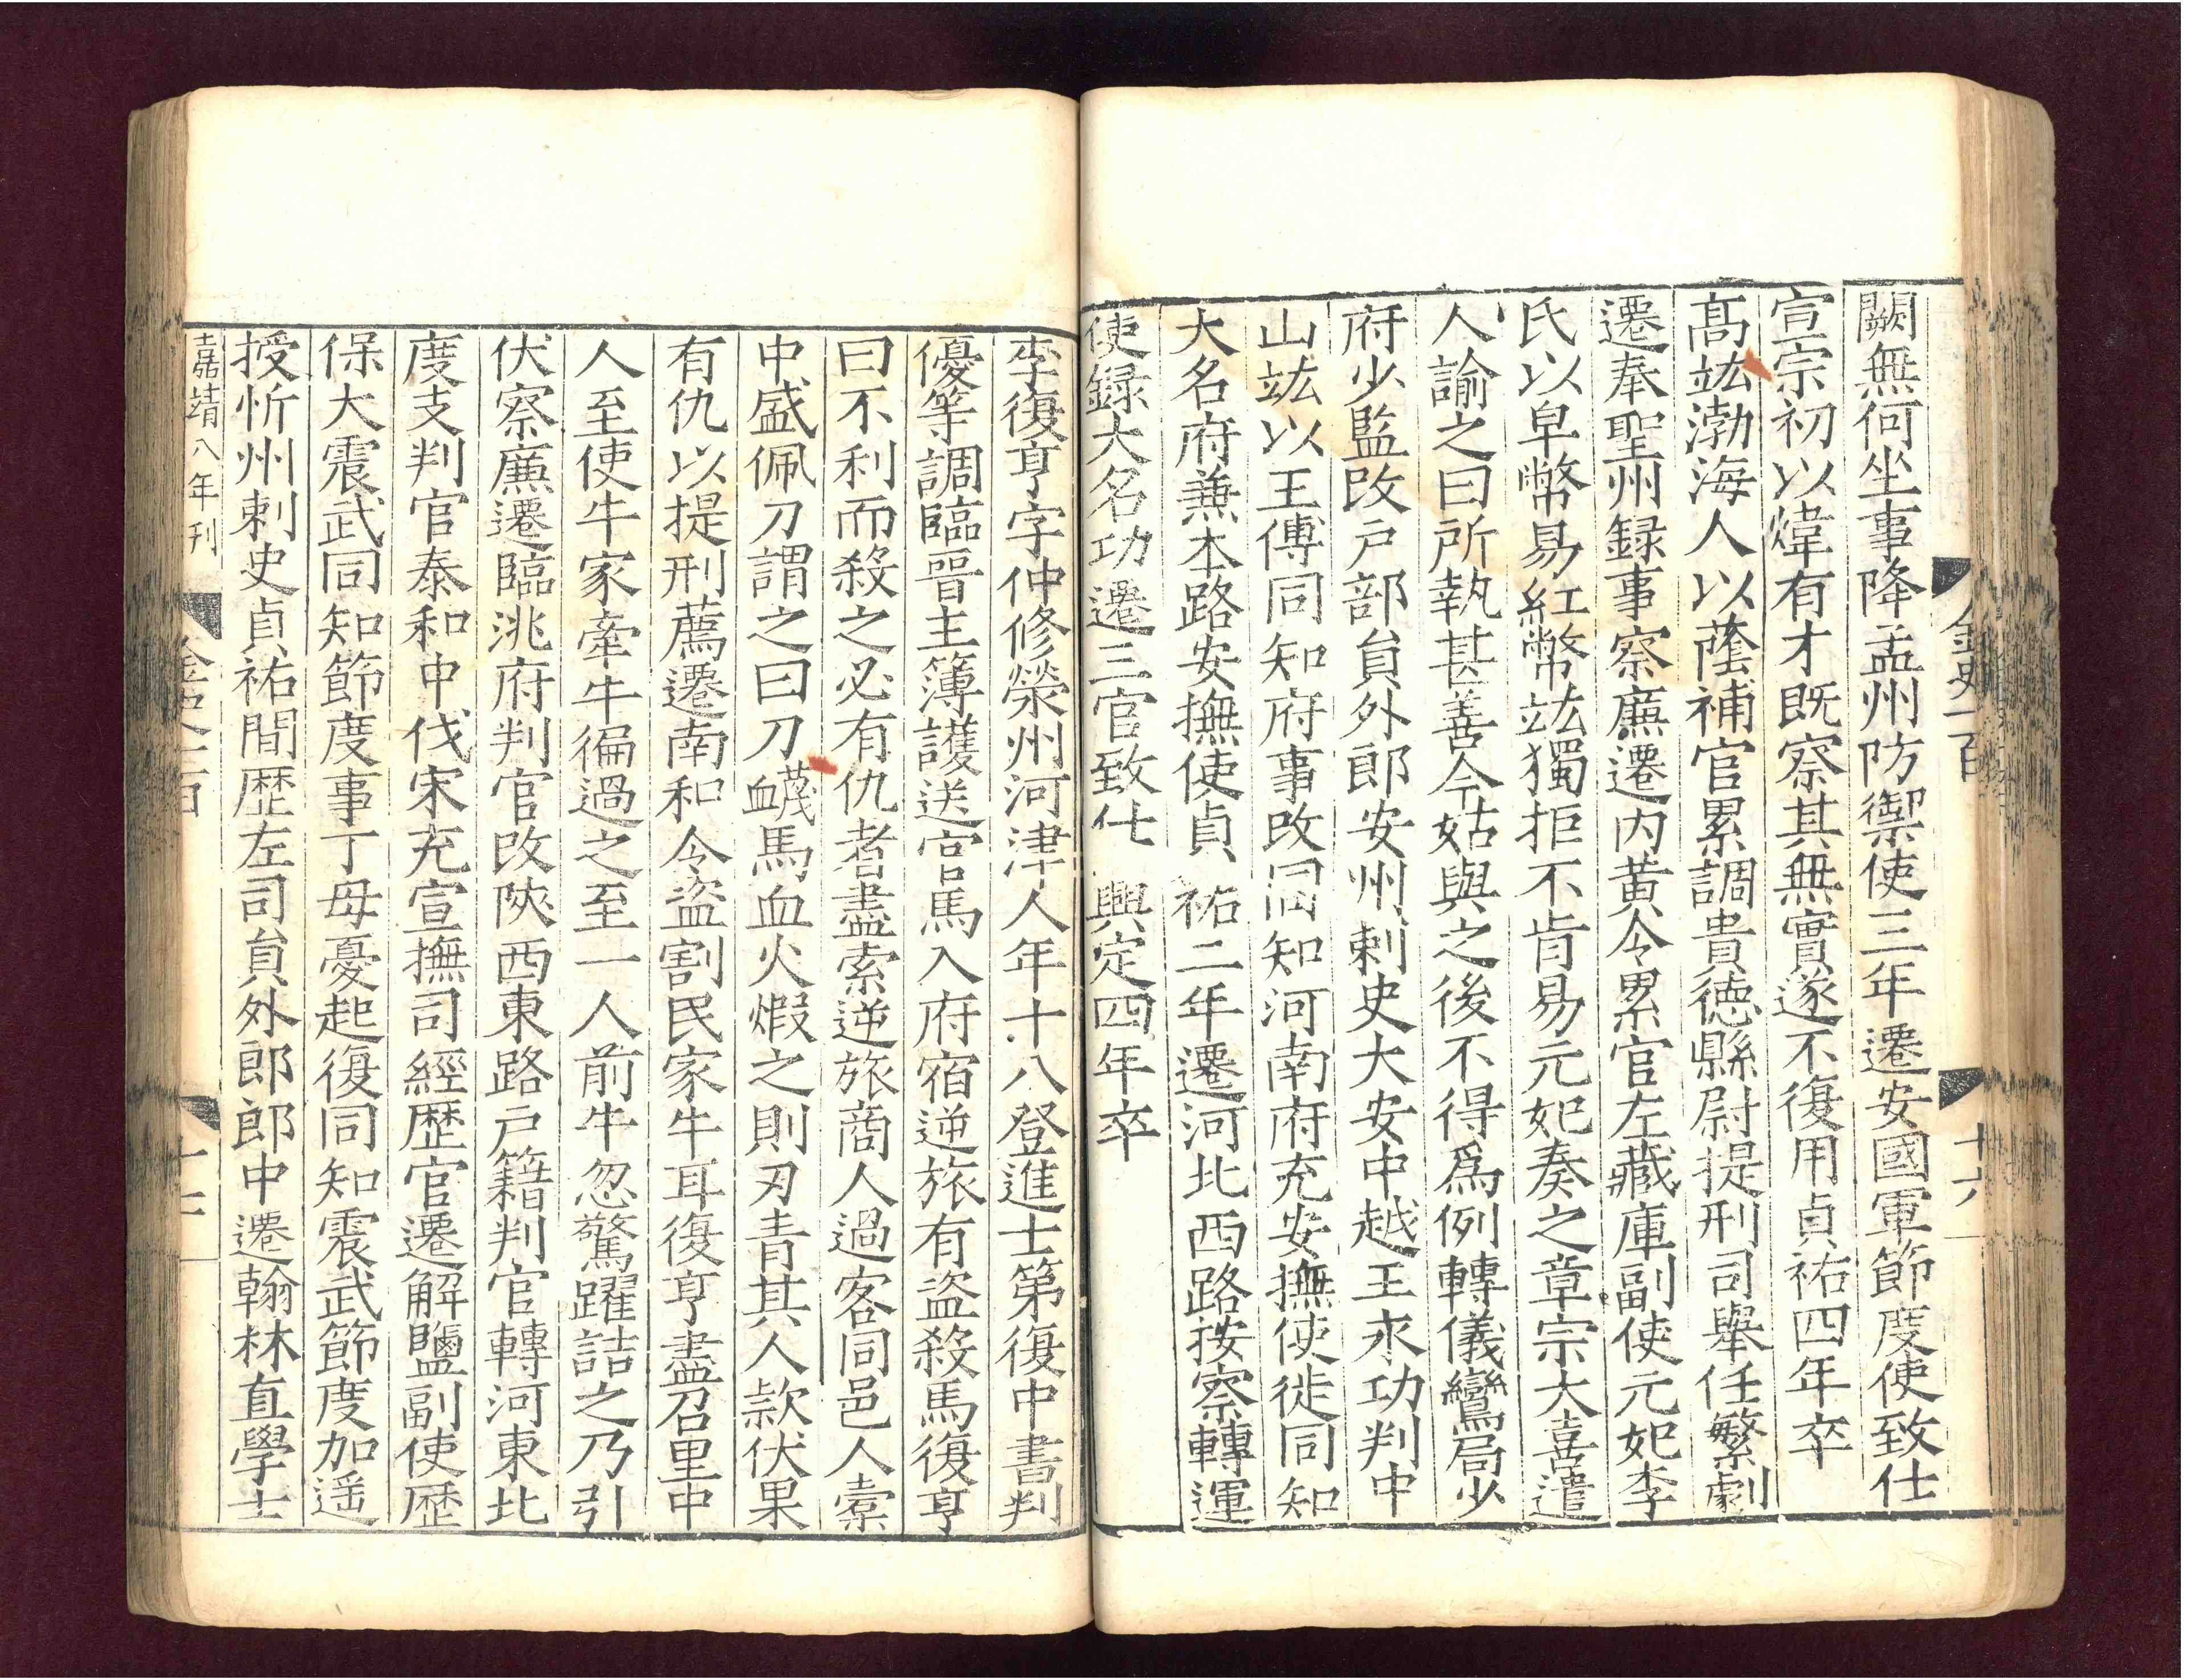 闕無何坐事降孟州防禦使三年遷安國軍節度使致仕
宣宗初以煒有才既察其無實遂不復用貞祐四年卒
髙竑渤海人以蔭補官累調貴德縣尉提刑司舉任繁劇
遷奉聖州録事察廉遷内黄令累官左藏庫副使元妃李
氏以皁幣易紅幣竑獨拒不肯易元妃奏之章宗大喜遣
人諭之曰所執甚善今姑與之後不得爲例轉儀鸞局少
府少監改户部貟外郎安州刺史大安中越王永功判中
山竑以王傅同知府事改同知河南府充安撫使徙同知
大名府兼本路安撫使貞祐二年遷河北西路按察轉運
使録大名功遷三官致仕興定四年卒
李復亨字仲修榮州河津人年十八登進士第復中書判
優等調臨晉主簿護送官馬入府宿逆旅有盜殺馬復亨
曰不利而殺之必有仇者盡索逆旅商人過客同邑人橐
中盛佩刀謂之曰刀衊馬血火煆之則刃青其人款伏果
有仇以提刑薦遷南和令盜割民家牛耳復亨盡召里中
人至使牛家牽牛徧過之至一人前牛忽驚躍詰之乃引
伏察廉遷臨洮府判官改陝西東路户籍判官轉河東北
度支判官泰和中伐宋充宣撫司經歷官遷解鹽副使歷
保大震武同知節度事丁母憂起復同知震武節度加遥
授忻州刺史貞祐間歷左司貟外郎郎中遷翰林直學士
嘉靖八年刊
金史一百
十六
金史一百
十七